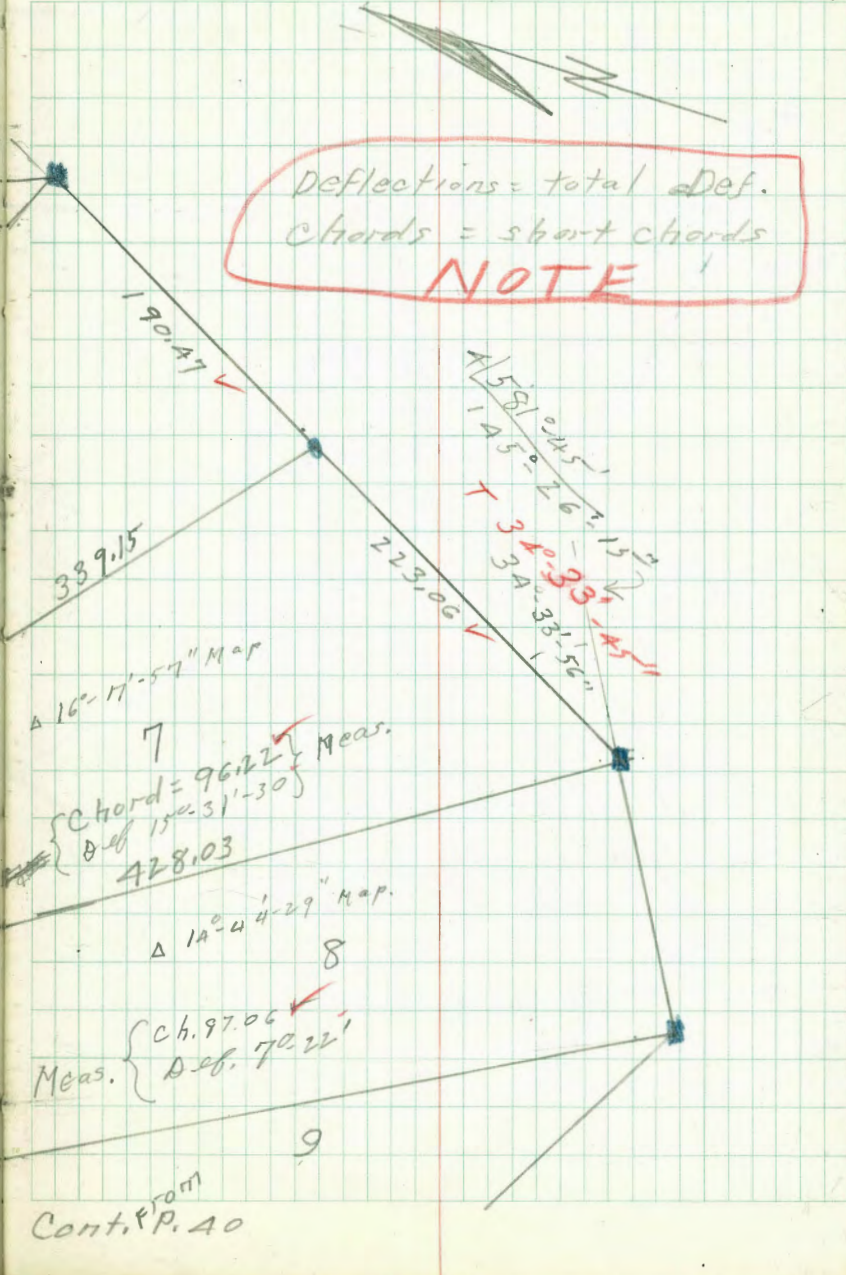 N
Deflections = total Def.
Chords = short chords
NOTE
190.47 ✓
4/581°-45'
145°-26'-15"
T 34°-33'-45"
34°-33'-56"
223.06 ✓
339.15
Δ 16°-17'-57" Map
7
Chord = 96.22 ✓ } Meas.
Def 15°-31'-30
428.03
Δ 14°-44'-29" Map.
8
Meas. { Ch. 97.06 ✓
Def. 7°-22'
9
Cont. from P. 40